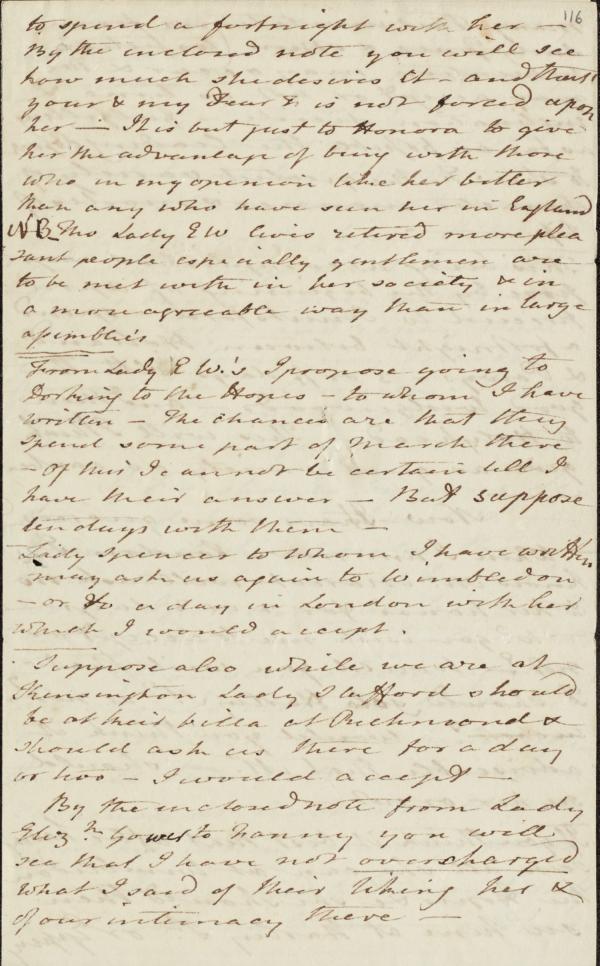 116
to spend a fortnight with her —
By the inclosed note you will see
how much she desires it – and that
your & my Dear F is not forced upon
her — It is but just to Honora to give
her the advantage of being with those
who in my openion like her better
than any who have seen her in England
NB Tho Lady E W lives retired more plea
sant people especially gentlemen are
to be met with in her society & in
a more agreeable way than in large
assemblies
From Lady E W.'s I propose going to
Dorking to the Hopes – to whom I have
written – The chances are that they
spend some part of March there
– of this I cannot be certain till I
have their answer — But suppose
ten days with them –
Lady Spencer to whom I have written
may ask us again to Wimbledon
– or to a day in London with her
which I would accept.
Suppose also while we are at
Kensington Lady Stafford should
be at their villa at Richmond &
should ask us there for a day
or two – I would accept –
By the inclosed note from Lady
Eliz.th Gower to Fanny you will
see that I have not overcharged
what I said of their liking her &
of our intimacy there —